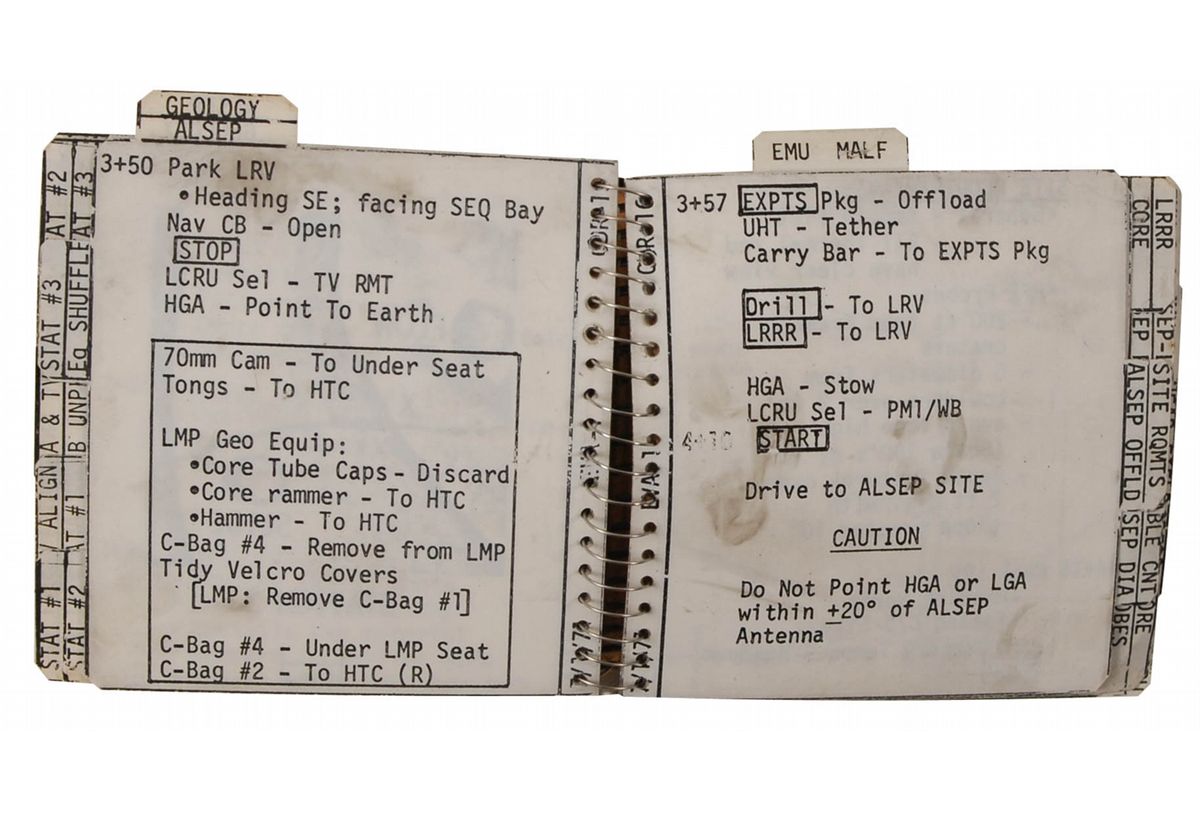 GEOLOGY
ALSEP
3+50 Park LRV
•Heading SE; facing SEQ Bay
Nav CB - Open
STOP
LCRU Sel - TV RMT
HGA - Point To Earth
70mm Cam - To Under Seat
Tongs - To HTC
LMP Geo Equip:
•Core Tube Caps - Discard
•Core rammer - To HTC
•Hammer - To HTC
C-Bag #4 - Remove from LMP
Tidy Velcro Covers
[LMP: Remove C-Bag #1]
C-Bag #4 - Under LMP Seat
C-Bag #2 - To HTC (R)
AT #2
STAT #3
A & TY
ALIGN
STAT #1
AT #3
Eq SHUFFLE
B UNP
AT #1
STAT #2
EMU MALF
3+57 EXPTS Pkg - Offload
UHT - Tether
Carry Bar - To EXPTS Pkg
Drill - To LRV
LRRR - To LRV
HGA - Stow
LCRU Sel - PM1/WB
START
Drive to ALSEP SITE
CAUTION
Do Not Point HGA or LGA
within ±20° of ALSEP
Antenna
CORE
ALSEP OFFLD
SEP DIA
OBES
LRRR
SITE RQMTS
BLE CNT
ORE